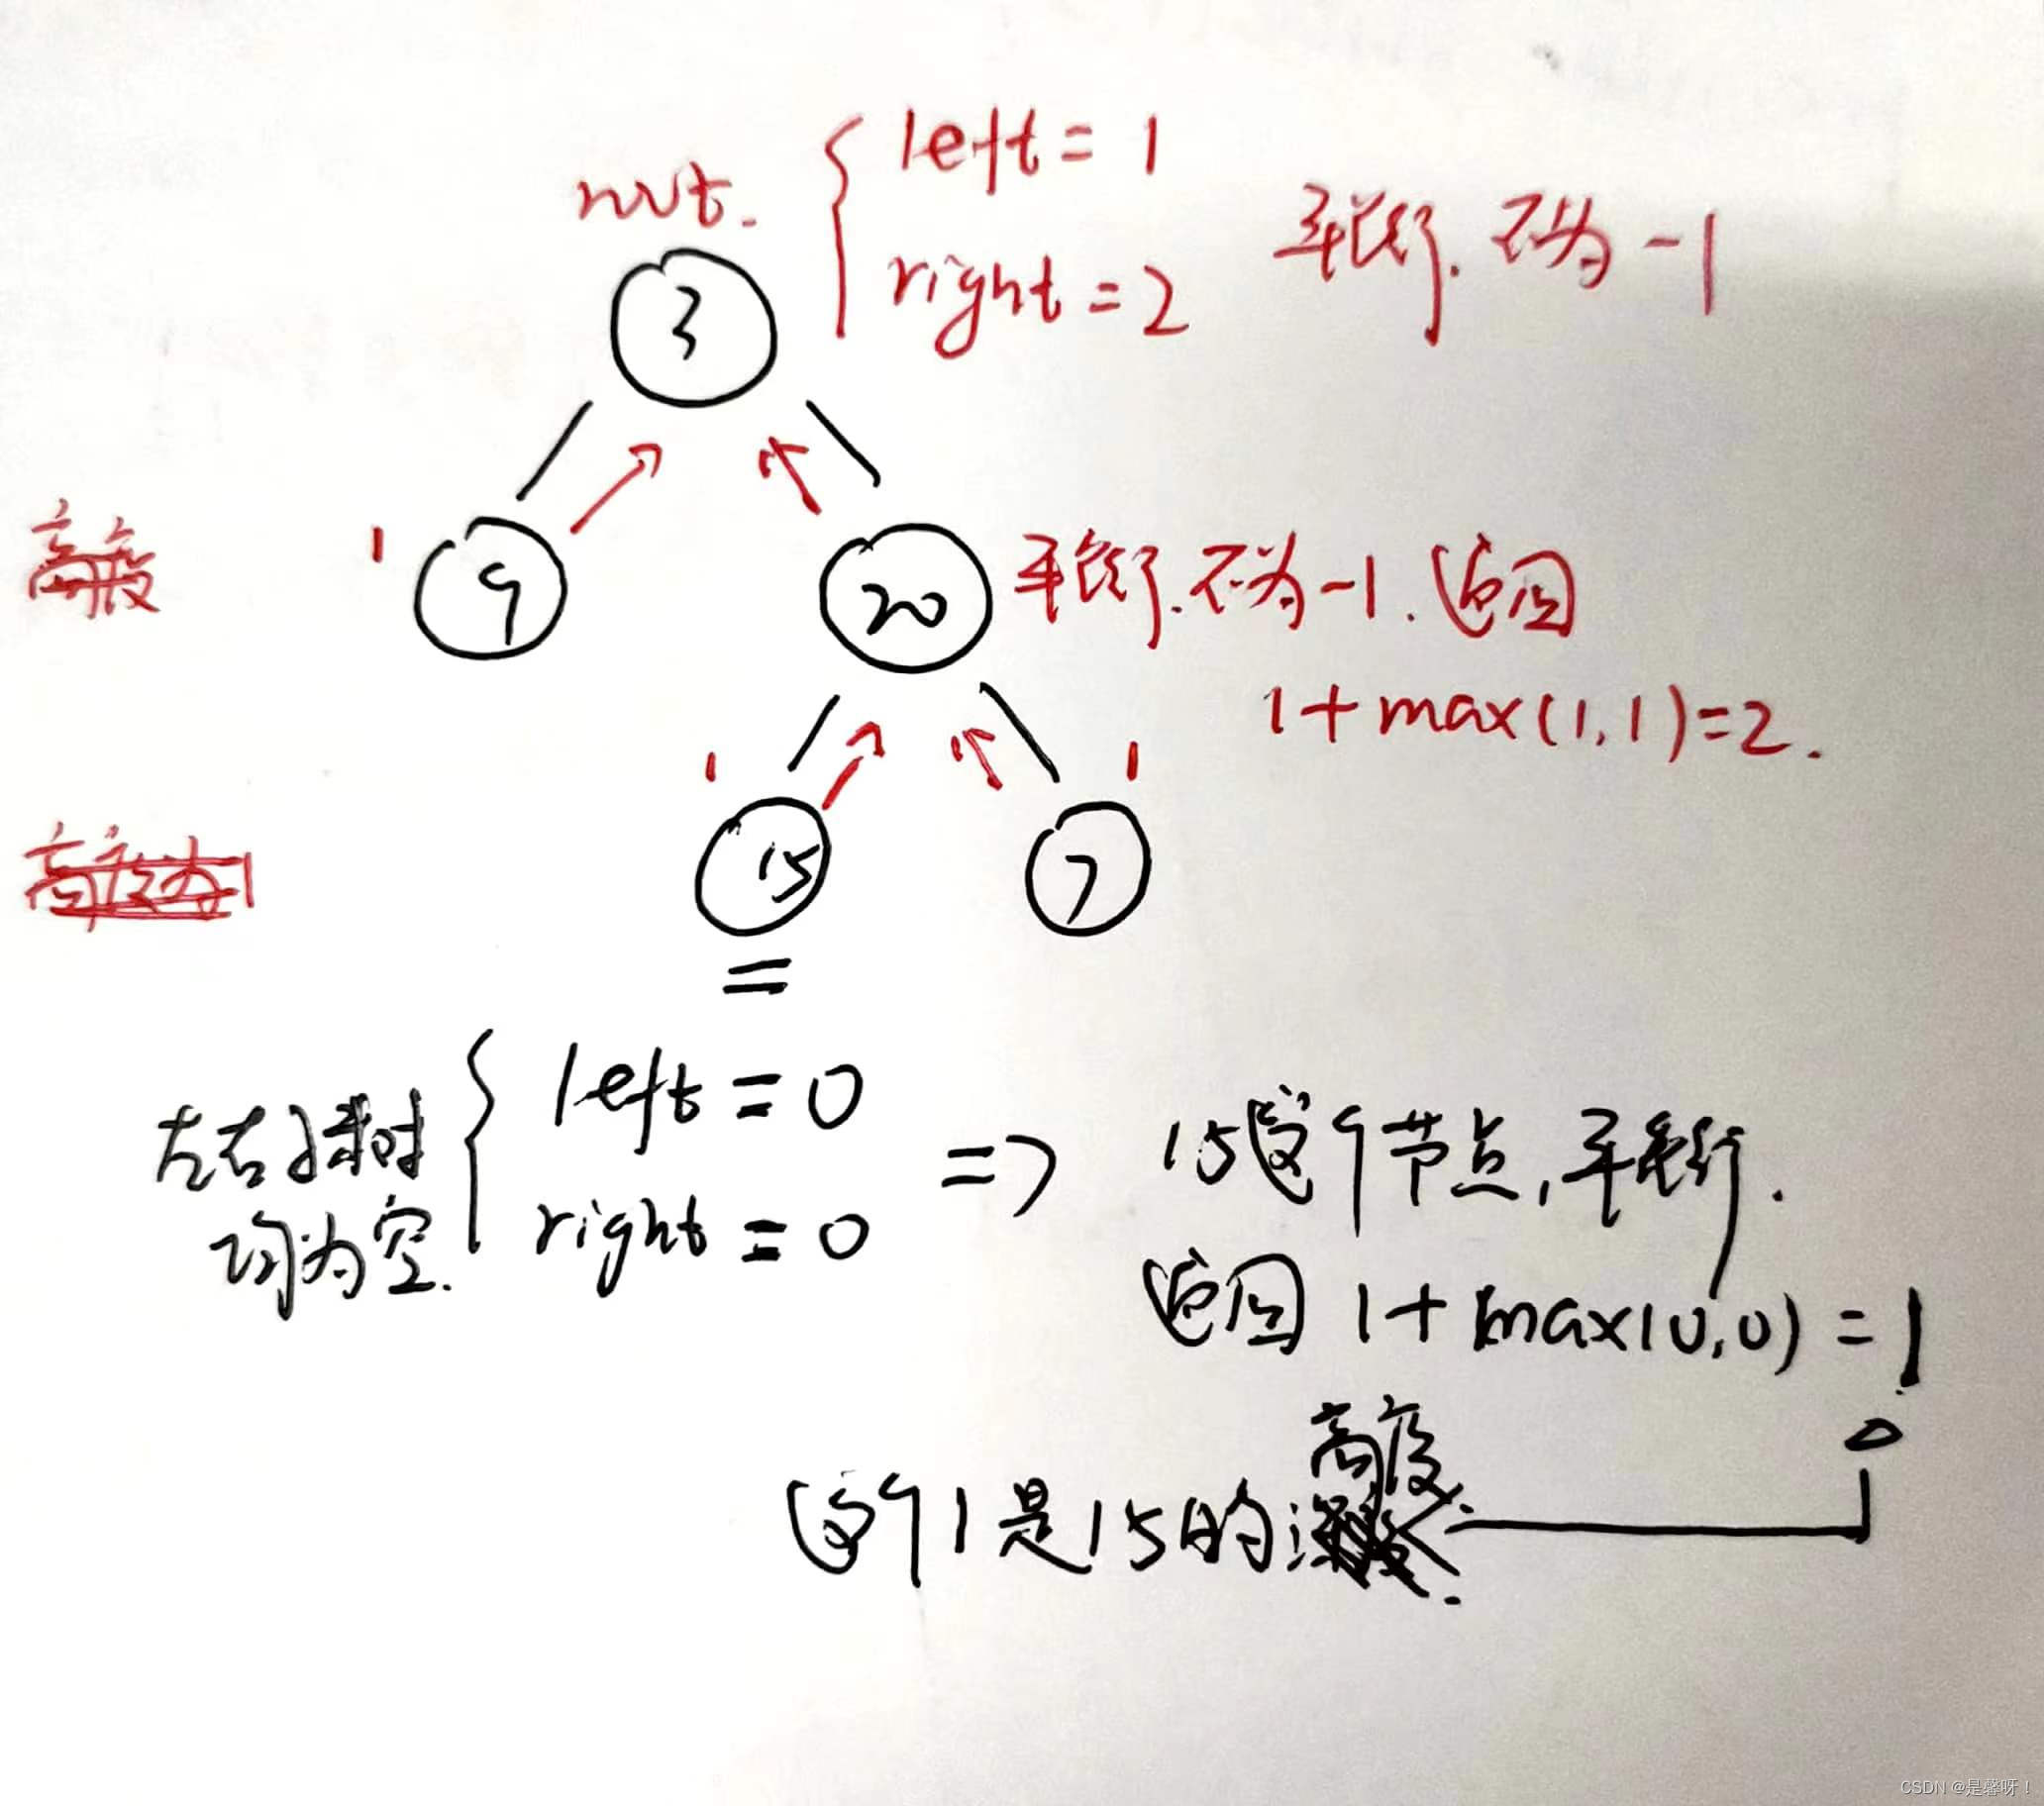 root.
left = 1
right = 2
平衡. 不为 -1
3
高度
1
9
20
平衡. 不为 -1. 返回
1 + max(1,1) = 2.
1
1
高度为1
15
7
=
左右子树
均为空.
left = 0
right = 0
=> 15这个节点, 平衡.
返回 1 + max(0,0) = 1
高度.
这个1是15的
CSDN @是馨呀！